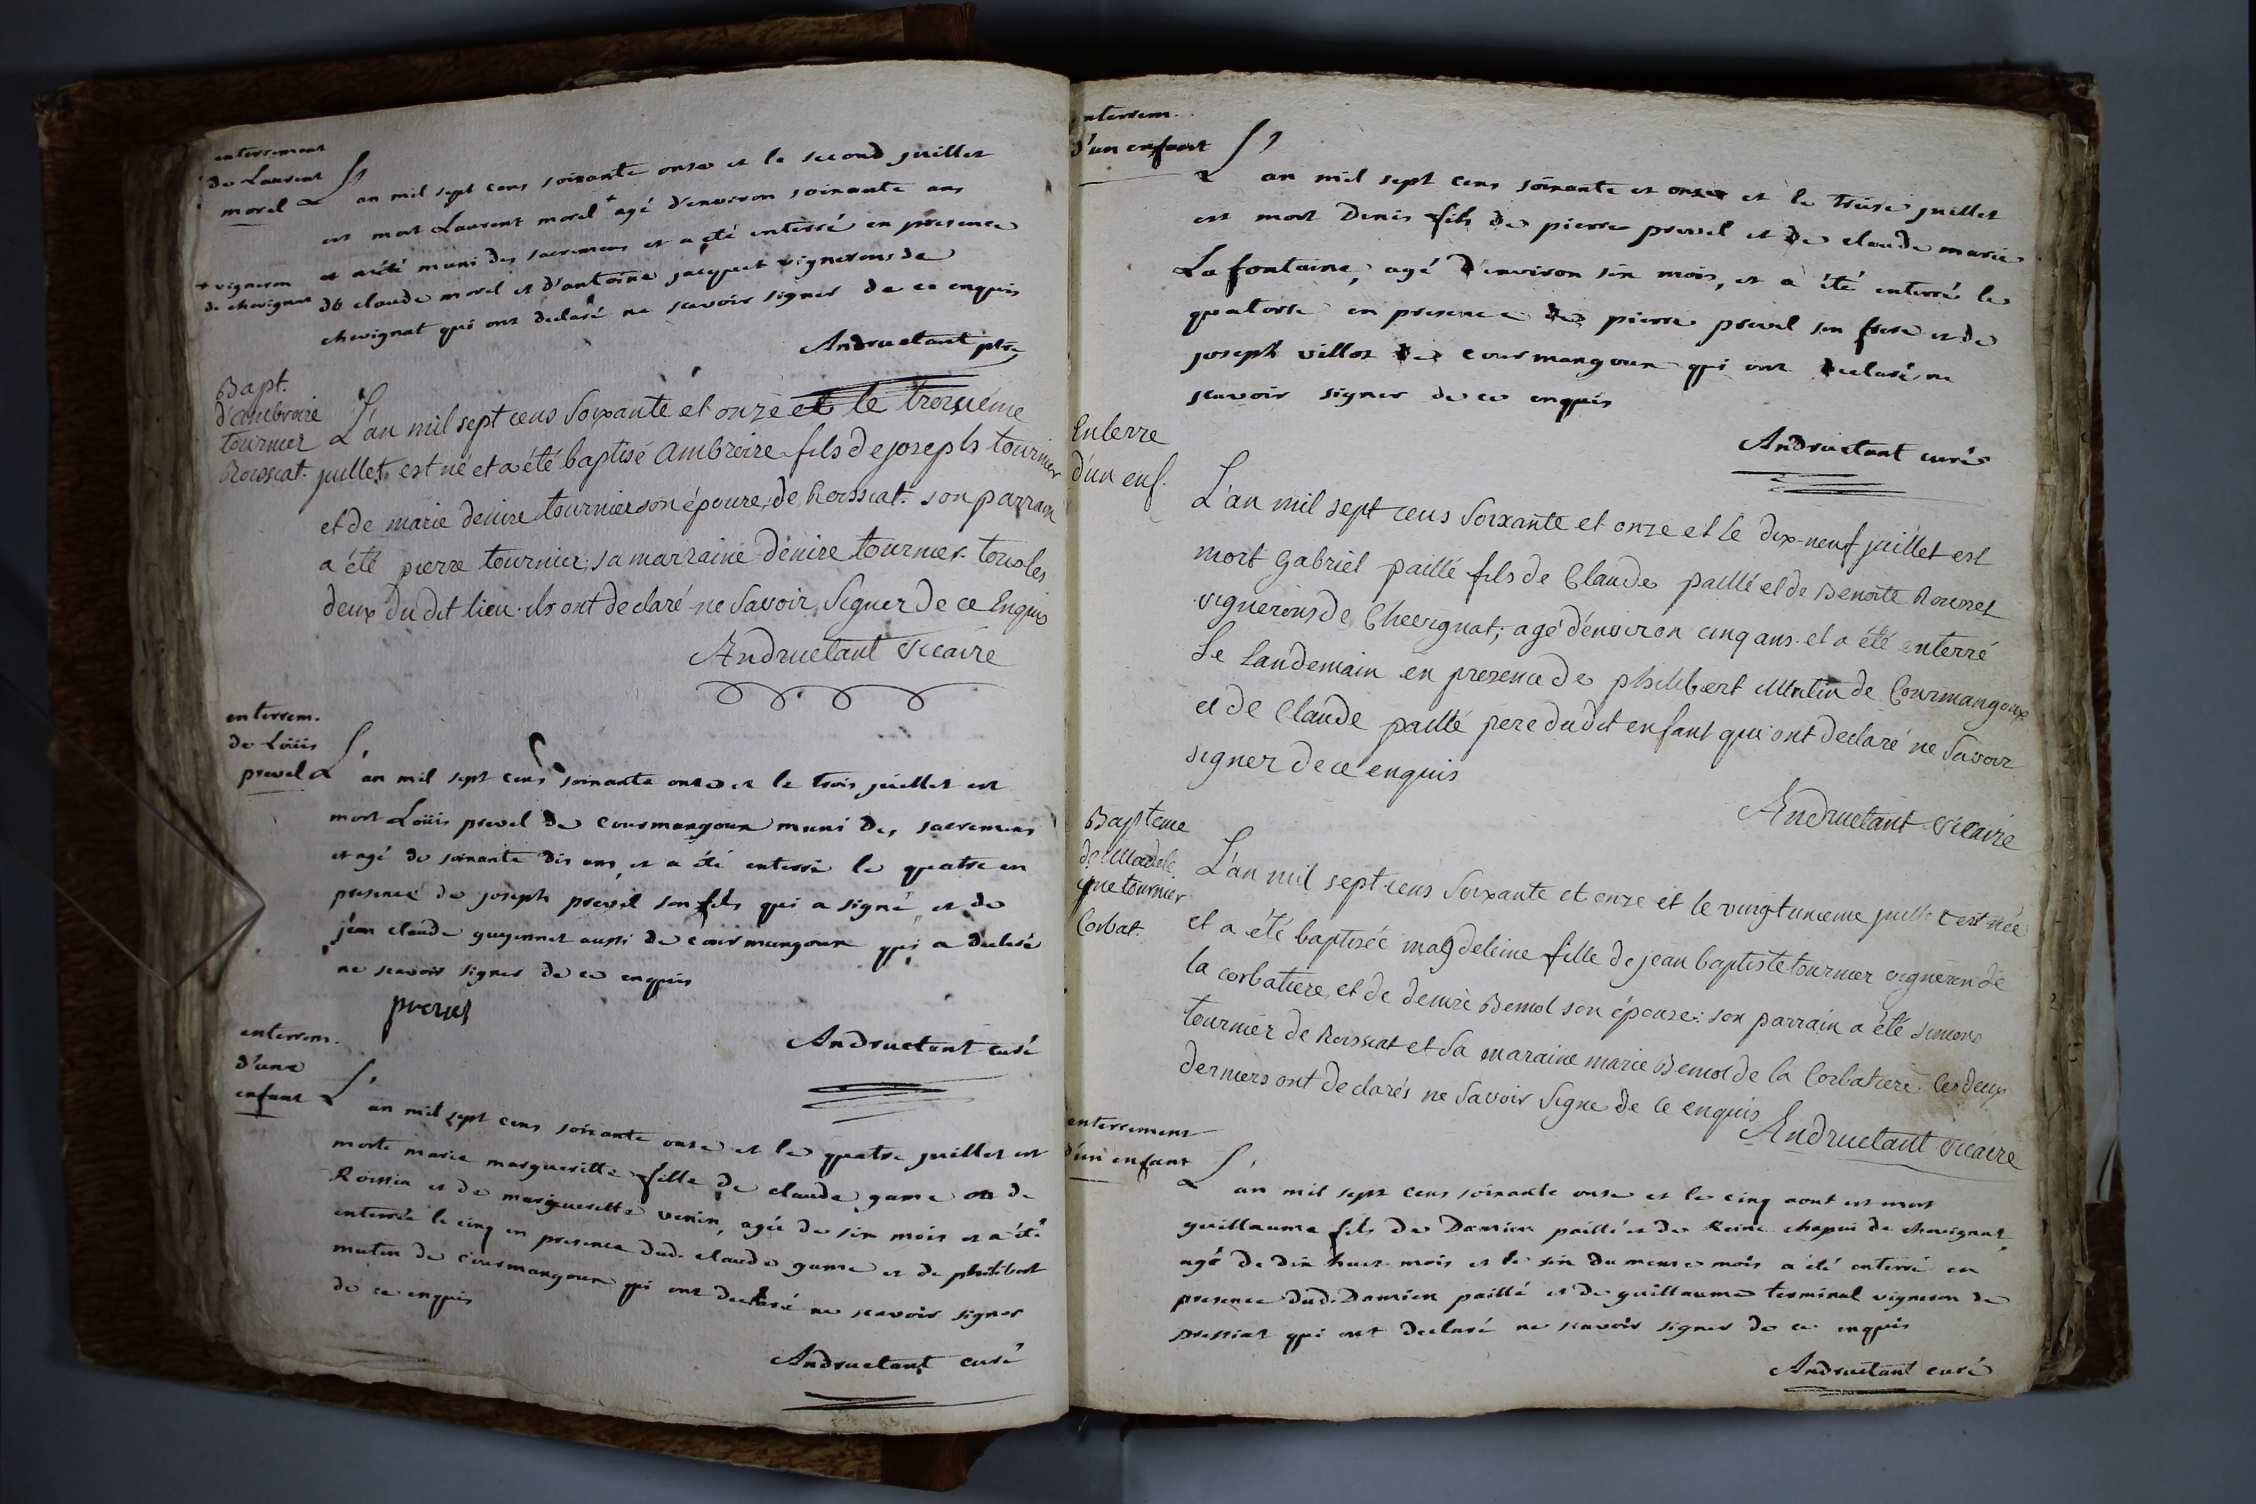 enterrement
de Laurent
morel
L'an mil sept cens soixante onze et le second juillet
est mort Laurent morel + agé d'environ soixante ans
et a été muni des sacremens et a été enterré en presence
+ vigneron
de chevignat
de claude morel et d'antoine jacquet vignerons de
chevignat qui ont declaré ne scavoir signer de ce enquis
Andructant ptre
Bapt.
d'ambroire
tournier
Roissiat.
L'an mil sept cens soixante et onze et le troisieme
juillet, est né et a été baptisé Ambroire fils de joseph tournier
et de marie denire tournier son épouze, de Roissiat. son parrain
a été pierre tournier; sa marraine denire tournier tous les
deux du dit lieu. ils ont declaré ne savoir signer de ce Enquis
Andructant vicaire
enterrem.
de Loüis
prevel
L'an mil sept cens soixante onze et le trois juillet est
mort Loüis prevel de courmangoux muni des sacremens
et agé de soixante dix ans, et a été enterré le quatre en
presence de joseph prevel son fils qui a signé, et de
jean claude guyennet aussi de courmangoux qui a declaré
ne scavoir signer de ce enquis
prevel
Andructant curé
enterrem.
d'une
enfant
L'an mil sept cens soixante onze et le quatre juillet est
morte marie margueritte fille de claude game de
Roissia et de margueritte venin, agée de six mois et a été
enterrée le cinq en presence dud. claude game et de philibert
mutin de courmangoux qui ont declaré ne scavoir signer
de ce enquis
Andructant curé
enterrem.
d'un enfant
L'an mil sept cens soixante et onze et le treise juillet
est mort Denis fils de pierre prevel et de claude marie
La fontaine, agé d'environ six mois, et a été enterré le
quatorse en presence de pierre prevel son frere et de
joseph villot de courmangoux qui ont declaré ne
scavoir signer de ce enquis
Andructant curé
Enterre
d'un enf.
L'an mil sept cens soixante et onze et le dix-neuf juillet est
mort Gabriel paillé fils de Claude paillé et de Benoite Rousset
vignerons de Chevignat; agé d'environ cinq ans. et a été enterré
Le landemain en presence de philibert Mutin de Courmangoux
et de Claude paillé pere du dit enfant qui ont declaré ne savoir
signer de ce enquis
Andructant vicaire
Bapteme
de Madelé
ine tournier
Corbat.
L'an mil sept cens soixante et onze et le vingtunieme juillet est née
et a été baptisée magdeleine fille de jean baptiste tournier vigneron de
la corbatiere, et de denire Bemol son épouze: son parrain a été simon
tournier de Roissiat et sa maraine marie Bemol de la Corbatiere. Les deux
derniers ont declarés ne savoir signe de ce enquis
Andructant vicaire
enterrement
d'un enfant
L'an mil sept cens soixante onze et le cinq aout est mort
guillaume fils de Damien paillé et de Reine chapui de chevignat,
agé de dix huit mois et le six du meme mois a été enterré en
presence dud. Damien paillé et de guillaume terminal vigneron de
pressiat qui ont declaré ne scavoir signer de ce enquis
Andructant curé